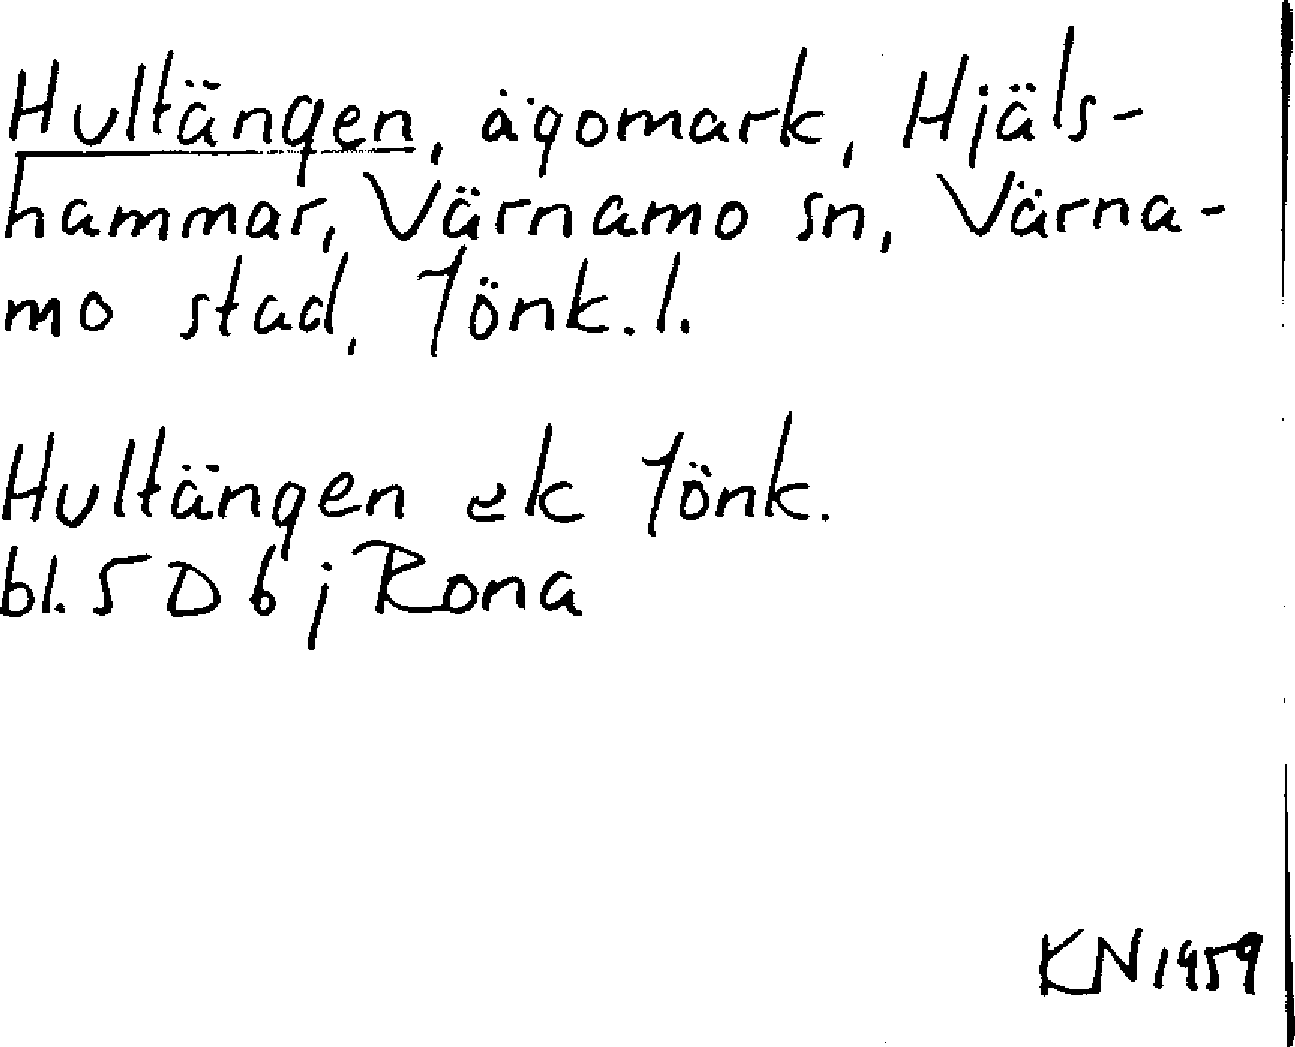 Hultängen, ägomark, Hjäls-
hammar, Värnamo sn, Värna-
mo stad, Jönk. l.
Hultängen ek Jönk.
bl. 5 D 6 j Rona
KN 1959